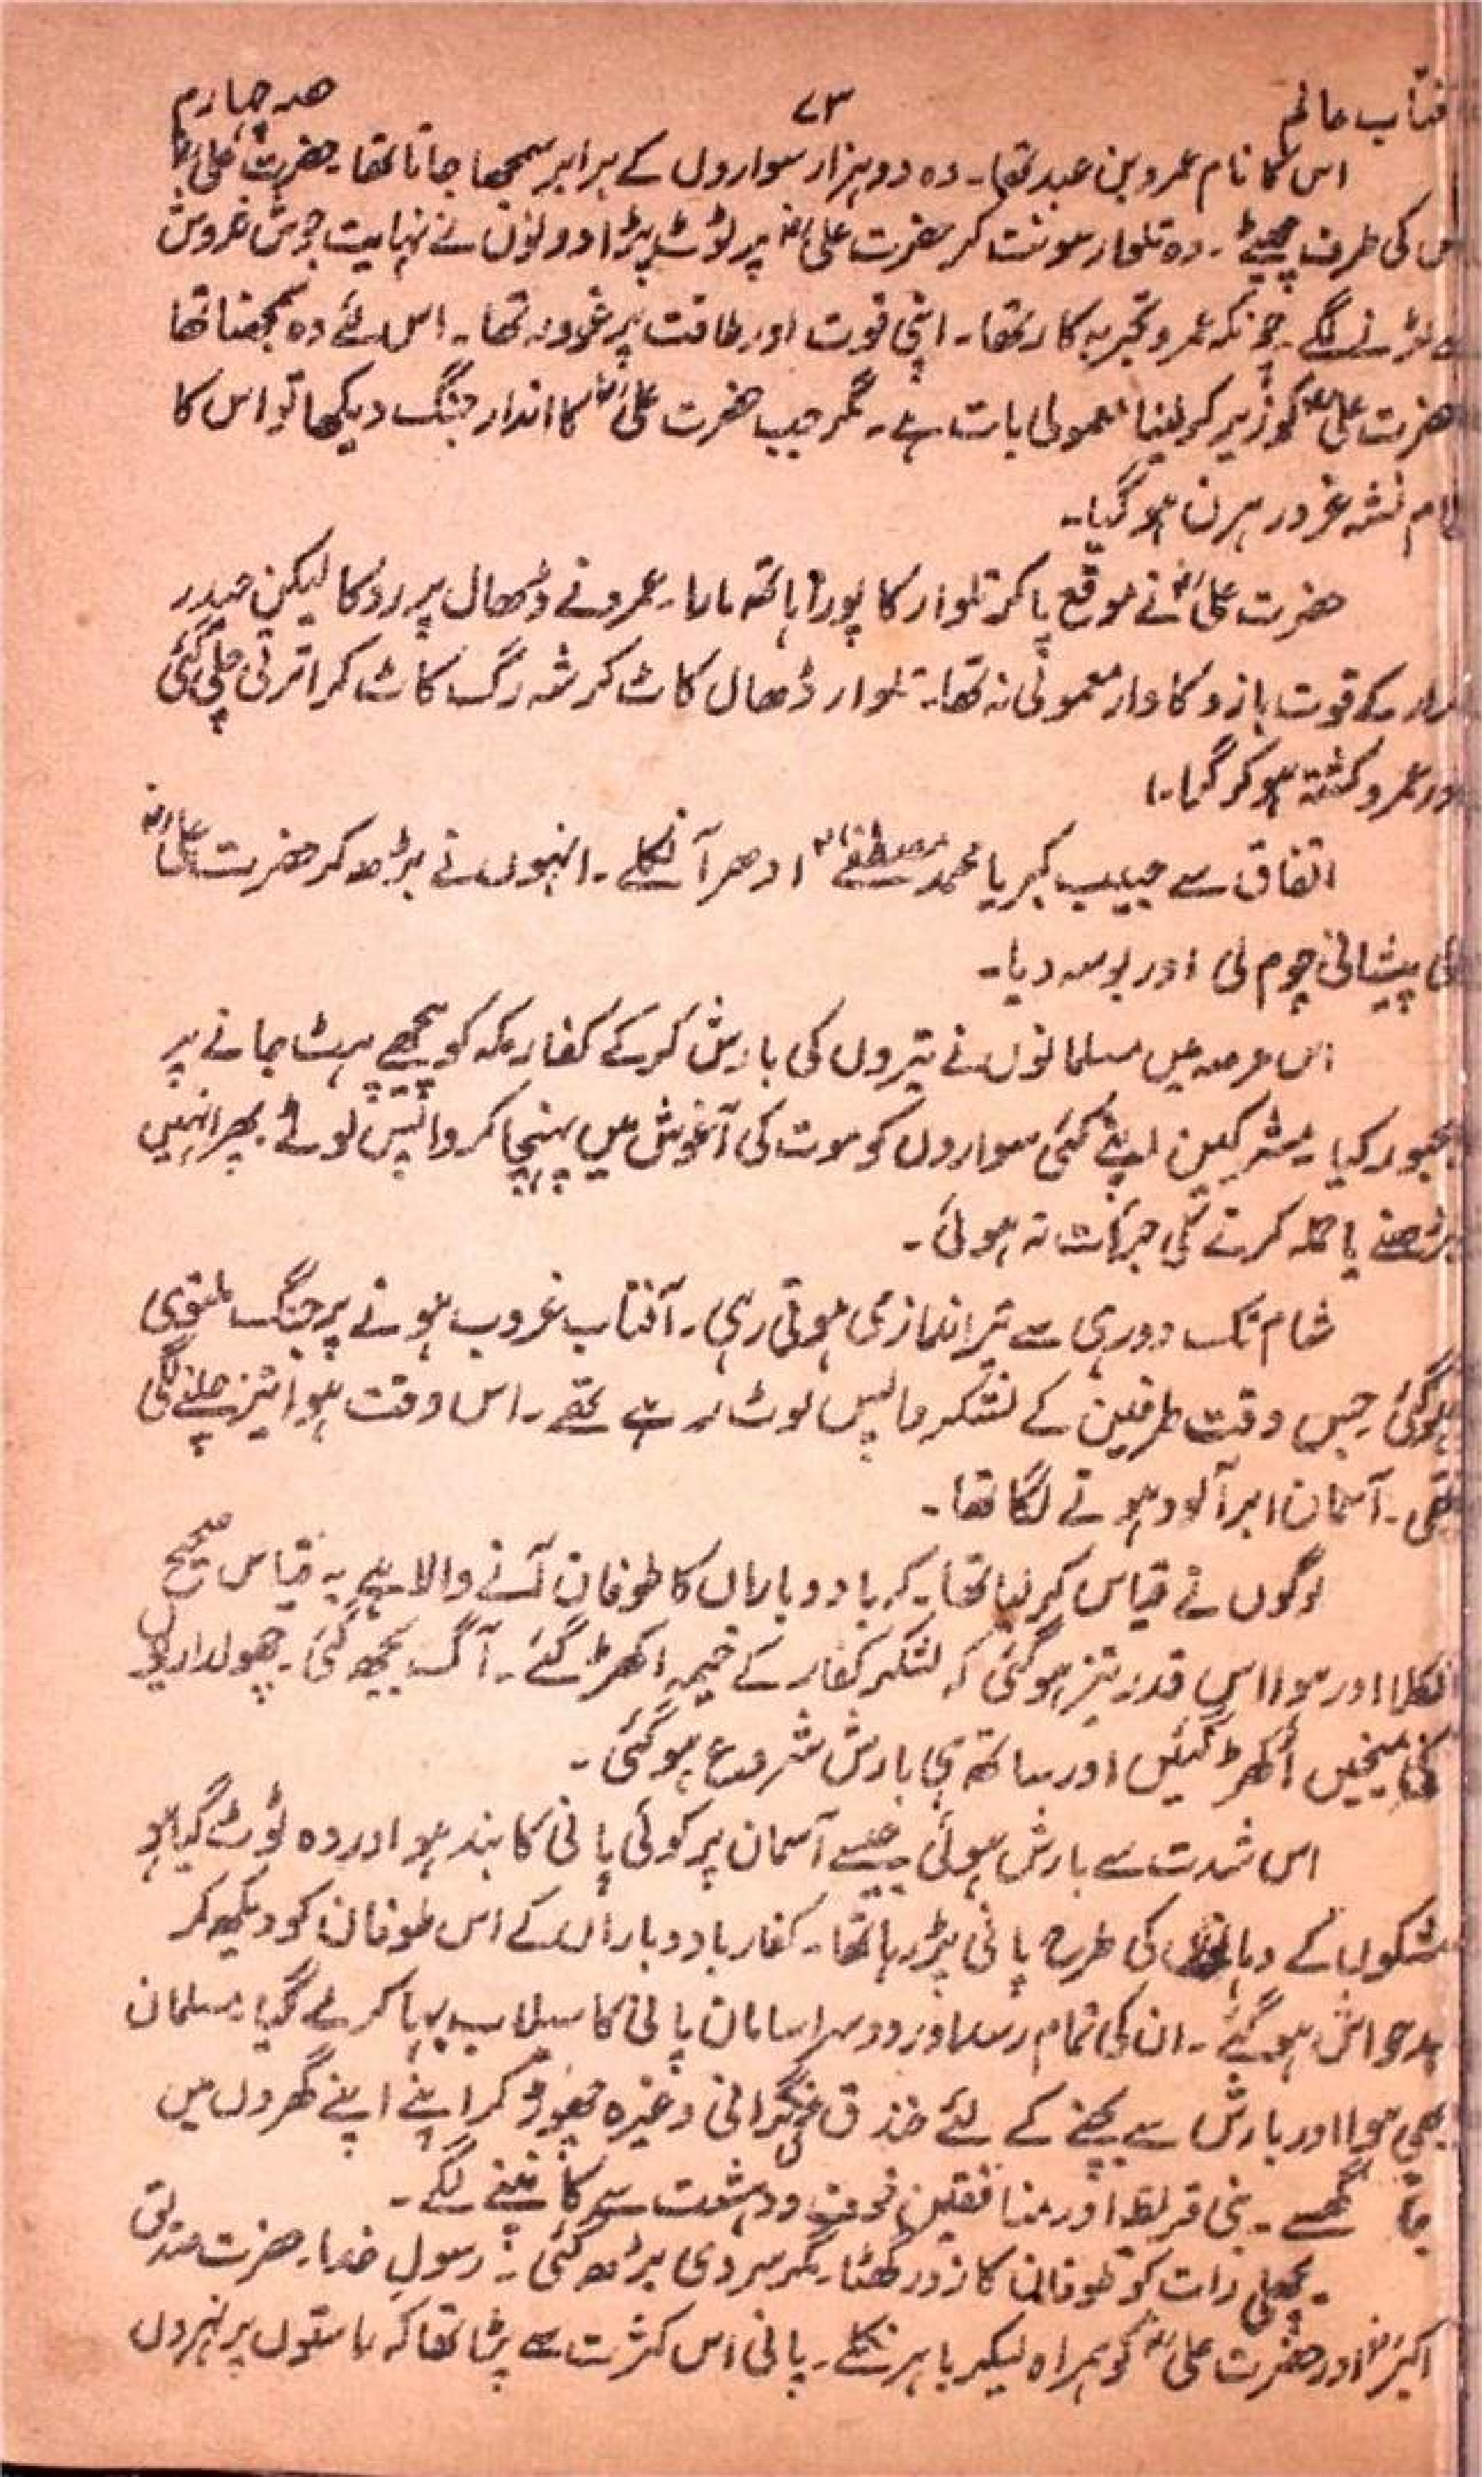 فتاب عالم ۷۳ حصہ چہارم
اس کا نام عمرو بن عبد تھا۔ وہ دو ہزار سواروں کے برابر سمجھا جاتا تھا۔ حضرت علیؓ
س کی طرف جھپٹے۔ وہ تلوار سونت کر حضرت علیؓ پر ٹوٹ پڑا دونوں نے نہایت جوش خروش
لڑنے لگے۔ چونکہ عمرو تجربہ کار تھا۔ اپنی قوت اور طاقت پر غرور تھا۔ اس لئے وہ سمجھتا تھا
حضرت علیؓ کو زیر کر لینا معمولی بات ہے۔ مگر جب حضرت علیؓ کا انداز جنگ دیکھا تو اس کا
ام نشہ غرور ہرن ہو گیا۔
حضرت علیؓ نے موقع پا کر تلوار کا پورا ہاتھ مارا۔ عمرو نے ڈھال پر روکا لیکن حیدر
رار کے قوت بازو کا وار معمولی نہ تھا۔ تلوار ڈھال کاٹ کر شہ رگ کاٹ کر اترتی چلی گئی
ور عمرو کشتہ ہو کر گرا۔
اتفاق سے حبیب کبریا محمد مصطفےٰ ادھر آ نکلے۔ انہوں نے بڑھ کر حضرت علیؓ
کی پیشانی چوم لی اور بوسہ دیا۔
اس عرصہ میں مسلمانوں نے تیروں کی بارش کر کے کفار مکہ کو پیچھے ہٹ جانے پر
مجبور کیا۔ مشرکین اپنے کئی سواروں کو موت کی آغوش میں پہنچا کر واپس لوٹے۔ پھر انہیں
بڑھنے یا حملہ کرنے کی جرأت نہ ہوئی۔
شام تک دور ہی سے تیر اندازی ہوتی رہی۔ آفتاب غروب ہونے پر جنگ ملتوی
ہو گئی۔ جس وقت طرفین کے لشکر واپس لوٹ رہے تھے۔ اس وقت ہوا تیز چلنے لگی
تھی۔ آسمان ابر آلود ہونے لگا تھا۔
لوگوں نے قیاس کر لیا تھا۔ کہ باد و باراں کا طوفان آنے والا ہے یہ قیاس صحیح
نکلا اور ہوا اس قدر تیز ہو گئی کہ لشکر کفار کے خیمہ اکھڑ گئے۔ آگ بجھ گئی۔ چھولداریوں
کی میخیں اُکھڑ گئیں اور ساتھ ہی بارش شروع ہو گئی۔
اس شدت سے بارش ہوئی جیسے آسمان پر کوئی پانی کا بند ہو اور وہ ٹوٹ گیا ہو
مشکوں کے دہانوں کی طرح پانی پڑ رہا تھا۔ کفار باد و باراں کے اس طوفان کو دیکھ کر
بدحواس ہو گئے۔ ان کی تمام رسد اور دوسرا سامان پانی کا سیلاب بہا کر لے گیا۔ مسلمان
بھی ہوا اور بارش سے بچنے کے لئے خندق کی نگرانی وغیرہ چھوڑ کر اپنے اپنے گھروں میں
جا گھسے۔ بنی قریظہ اور منافقین خوف و دہشت سے کانپنے لگے۔
پچھلی رات کو طوفان کا زور گھٹا۔ مگر سردی بڑھ گئی۔ رسول خدا۔ حضرت صدیق
اکبرؓ اور حضرت علیؓ کو ہمراہ لیکر باہر نکلے۔ پانی اس کثرت سے پڑا تھا کہ راستوں پر نہروں